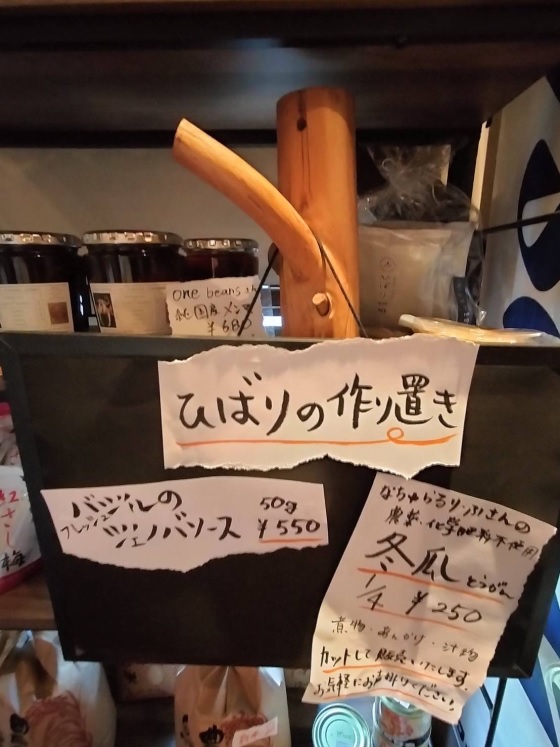 one beans
純国産メンマ
¥680
ひばりの作り置き
バジルの
フレッシュ
ジェノバソース
50g
¥550
なちゅらるりふさんの
農薬・化学肥料不使用
冬瓜 とうがん
1/4 ¥250
煮物・あんかけ・汁物
カットして販売いたします。
お気軽にお声掛けください。
梅